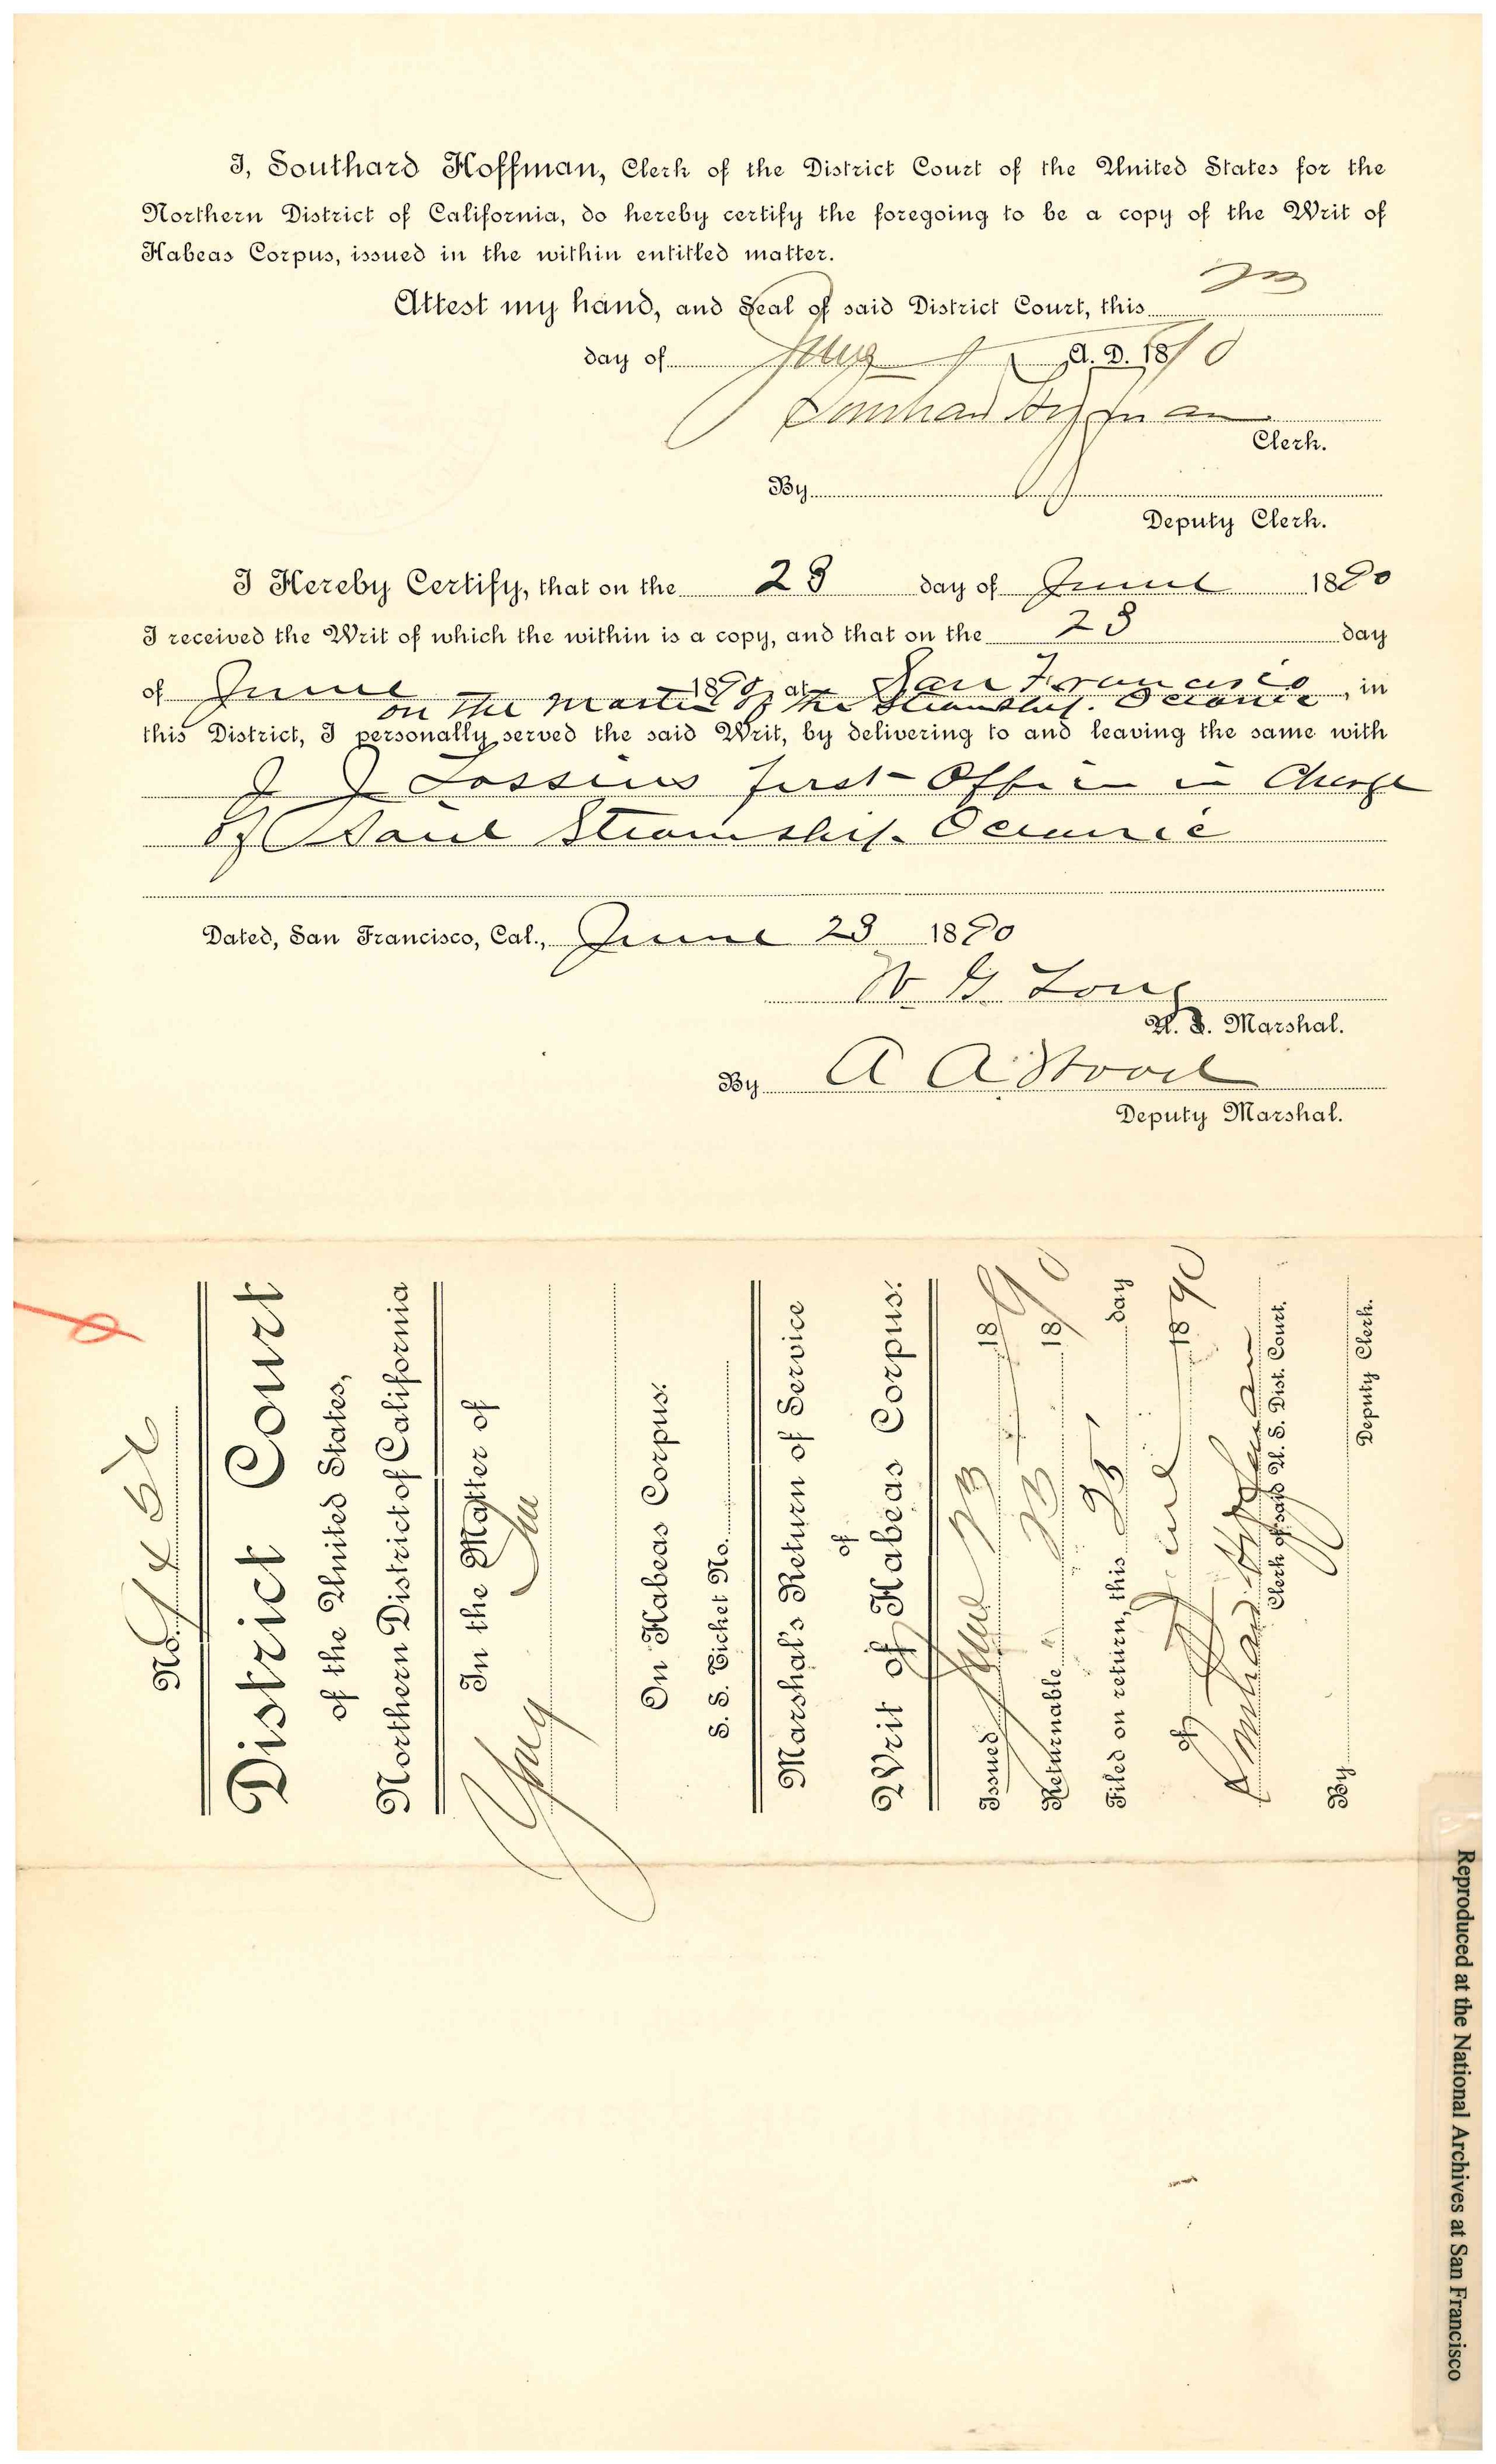 I, Southard Hoffman, Clerk of the District Court of the United States for the
Northern District of California, do hereby certify the foregoing to be a copy of the Writ of
Habeas Corpus, issued in the within entitled matter.
Attest my hand, and Seal of said District Court, this 23
day of June A. D. 1890
Southard Hoffman
Clerk.
By
Deputy Clerk.
I Hereby Certify, that on the 23 day of June 1890
I received the Writ of which the within is a copy, and that on the 23 day
of June 1890, at San Francisco, in
on the Master of the Steamship Oceanic
this District, I personally served the said Writ, by delivering to and leaving the same with
first Officer in Charge
of Said Steamship Oceanic
Dated, San Francisco, Cal., June 23 1890
W. G. Long
U. S. Marshal.
By A A Wood
Deputy Marshal.
No.
District Court
of the United States,
Northern District of California
In the Matter of
On Habeas Corpus.
S. S. Ticket No.
Marshal's Return of Service
of
Writ of Habeas Corpus.
Issued June 23 1890
Returnable " 23 1890
Filed on return, this 25 day
of June 1890
Southard Hoffman
Clerk of said U. S. Dist. Court.
By
Deputy Clerk.
Reproduced at the National Archives at San Francisco